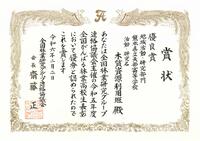 賞状
優良賞
地域活動・研究部門
熊本県立矢部高等学校
活動・研究名
木質資源利用班殿
あなたは全国林業研究グループ
連絡協議会主催の令和五年度
全国がんばる林業高校生表彰
において優秀と認められたので
これを賞します
令和六年二月二日
全国林業研究グループ連絡協議会
会長 齋藤 正